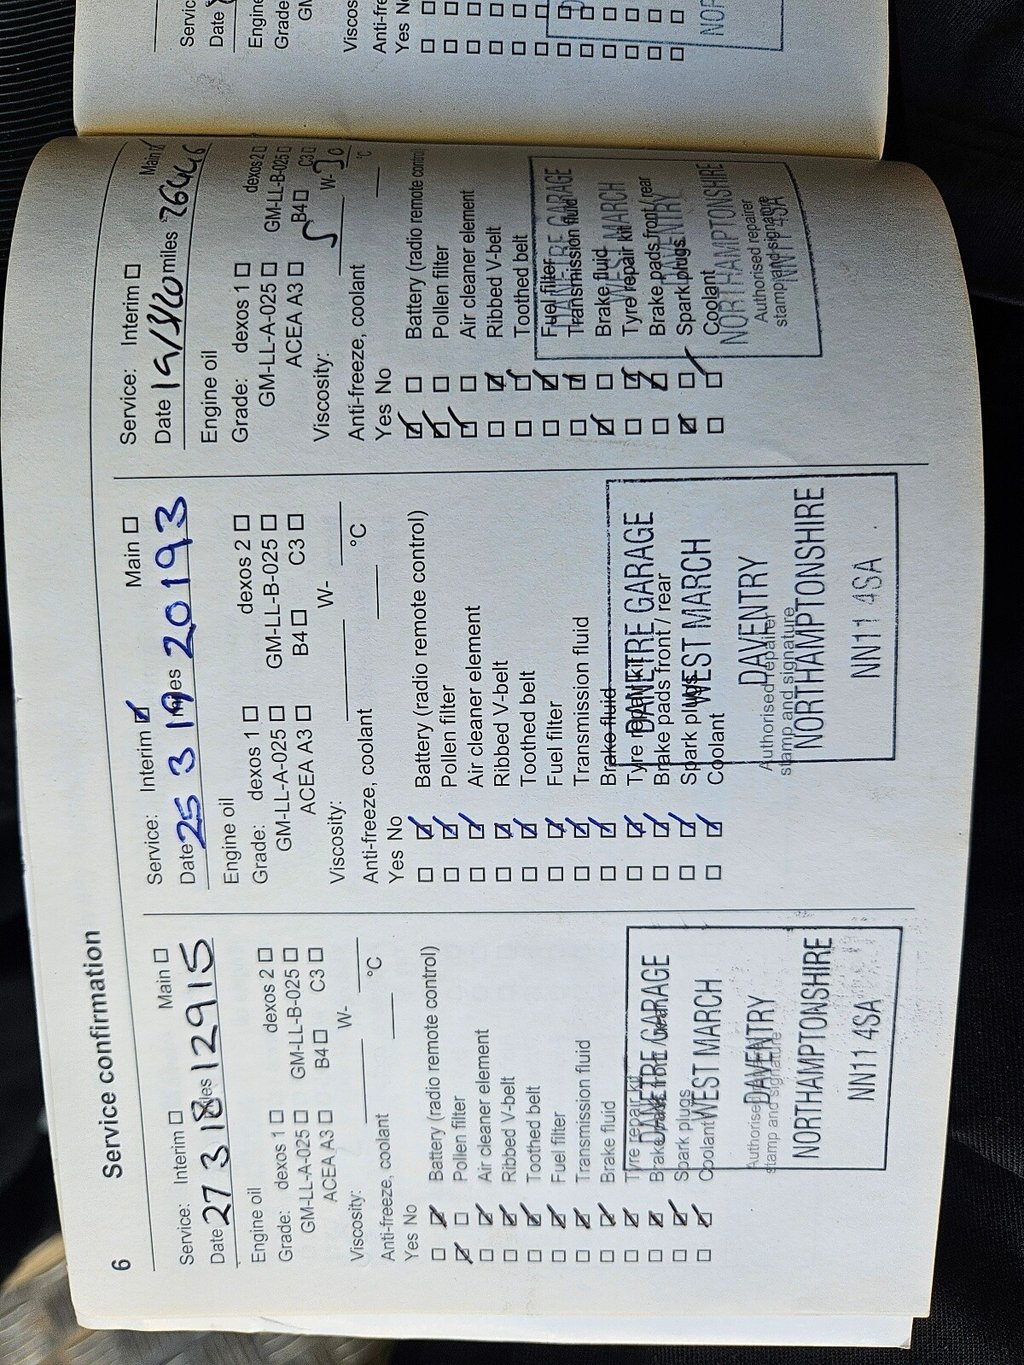 6
Service confirmation
Service: Interim Main
Date 27 3 18 miles 12915
Engine oil
Grade: dexos 1 dexos 2
GM-LL-A-025 GM-LL-B-025
ACEA A3 B4 C3
Viscosity: W-
Anti-freeze, coolant °C
Yes No
Battery (radio remote control)
Pollen filter
Air cleaner element
Ribbed V-belt
Toothed belt
Fuel filter
Transmission fluid
Brake fluid
Tyre repair kit
Brake pads front / rear
Spark plugs
Coolant
Authorised repairer
stamp and signature
DANETRE GARAGE
WEST MARCH
DAVENTRY
NORTHAMPTONSHIRE
NN11 4SA
Service: Interim Main
Date 25 3 19 miles 20193
Engine oil
Grade: dexos 1 dexos 2
GM-LL-A-025 GM-LL-B-025
ACEA A3 B4 C3
Viscosity: W-
Anti-freeze, coolant °C
Yes No
Battery (radio remote control)
Pollen filter
Air cleaner element
Ribbed V-belt
Toothed belt
Fuel filter
Transmission fluid
Brake fluid
Tyre repair kit
Brake pads front / rear
Spark plugs
Coolant
Authorised repairer
stamp and signature
DANETRE GARAGE
WEST MARCH
DAVENTRY
NORTHAMPTONSHIRE
NN11 4SA
Service: Interim Main
Date 19/3/20 miles 26446
Engine oil
Grade: dexos 1 dexos 2
GM-LL-A-025 GM-LL-B-025
ACEA A3 B4 C3
Viscosity: 5 W-30
Anti-freeze, coolant °C
Yes No
Battery (radio remote control)
Pollen filter
Air cleaner element
Ribbed V-belt
Toothed belt
Fuel filter
Transmission fluid
Brake fluid
Tyre repair kit
Brake pads front / rear
Spark plugs
Coolant
Authorised repairer
stamp and signature
DANETRE GARAGE
WEST MARCH
DAVENTRY
NORTHAMPTONSHIRE
NN11 4SA
Date
Engine
Grade
Yes No